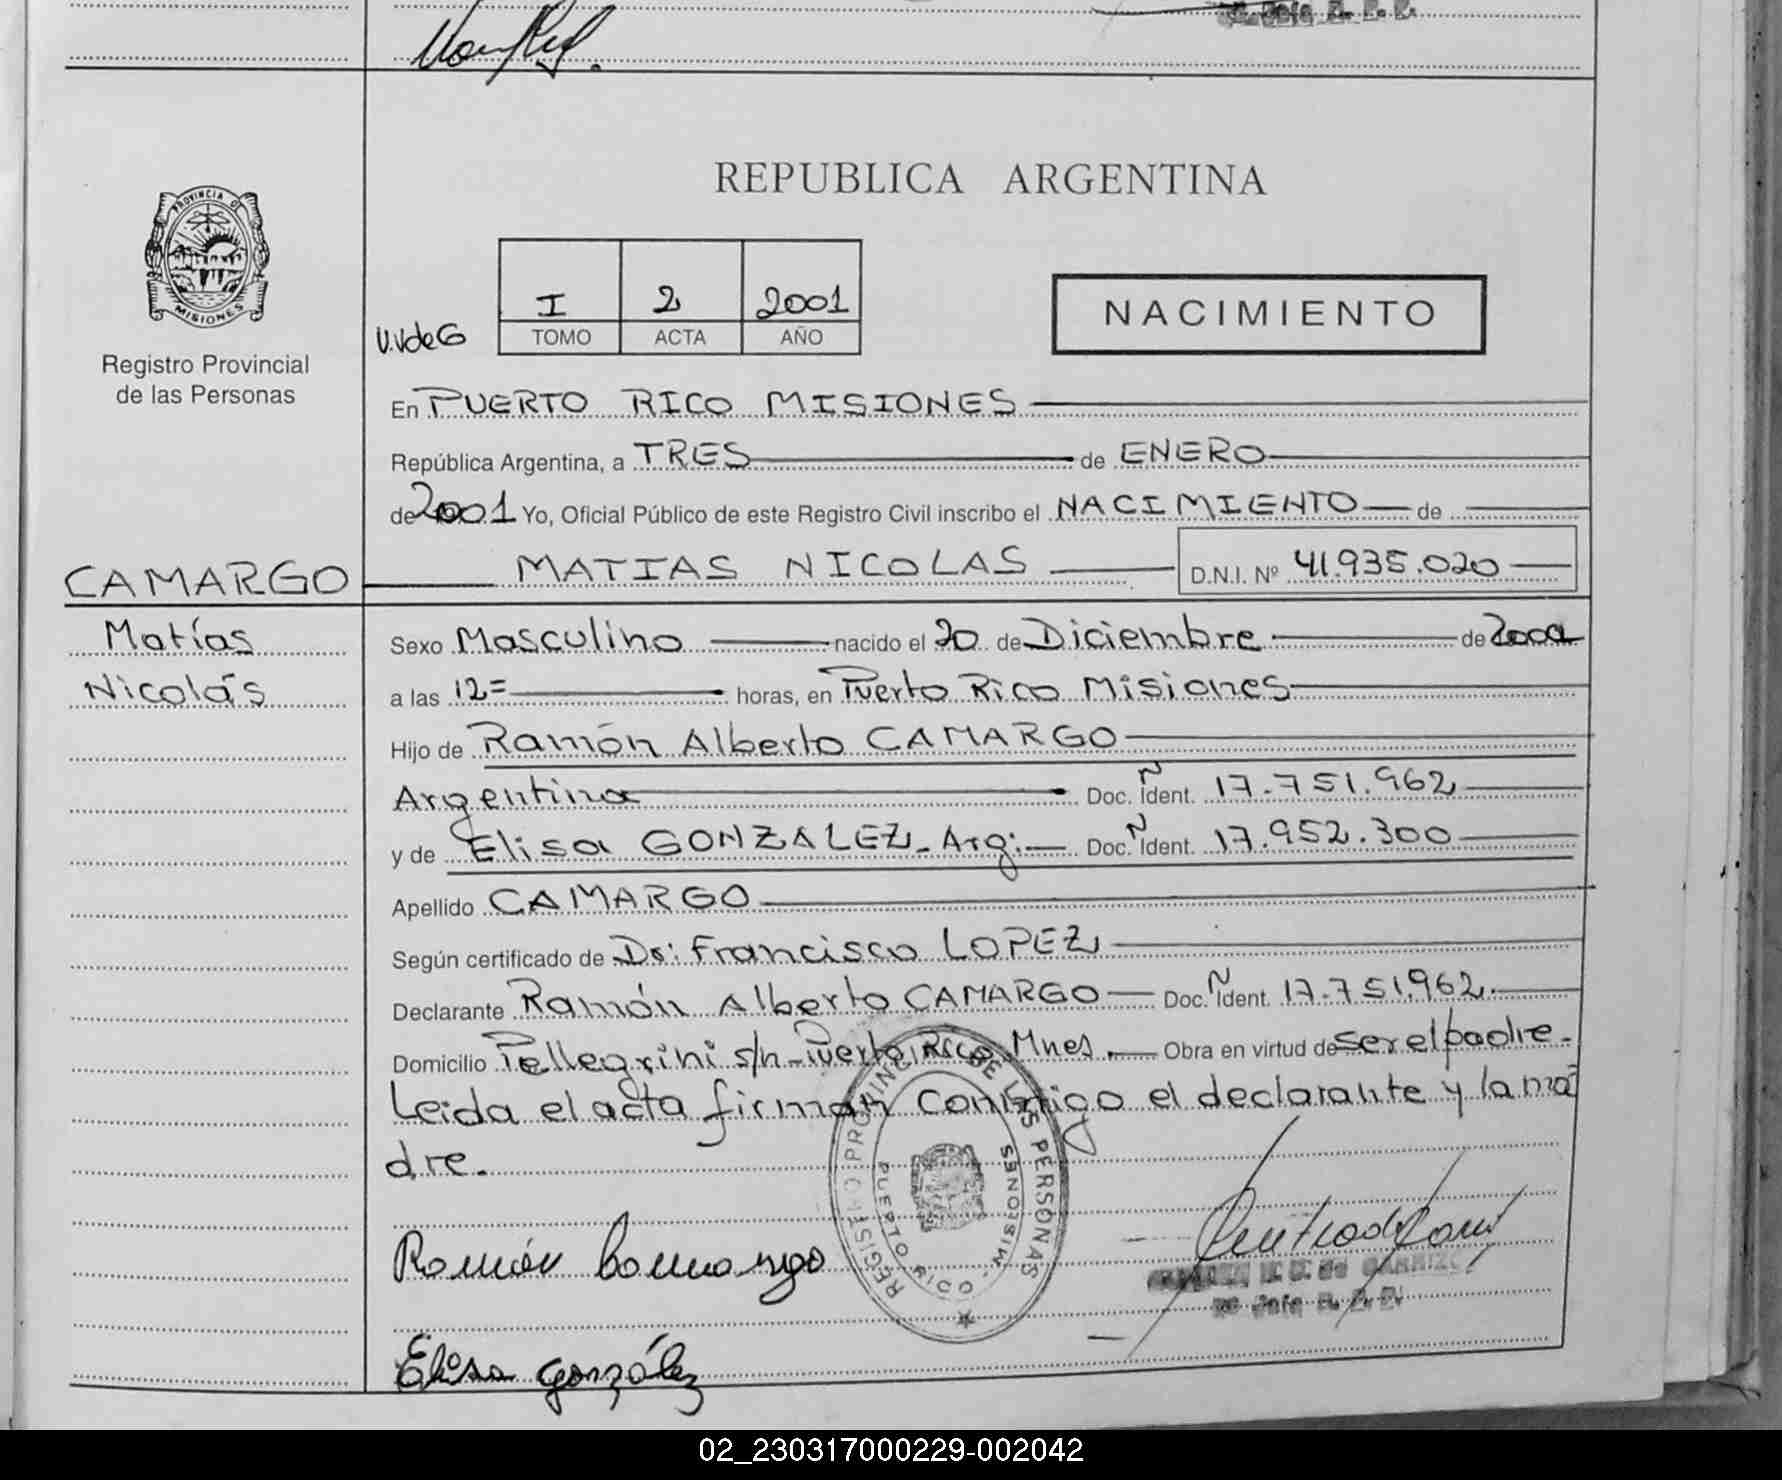 REPUBLICA ARGENTINA
PROVINCIA DE
MISIONES
Registro Provincial
de las Personas
U.VdeG
I 2 2001
TOMO ACTA AÑO
NACIMIENTO
En PUERTO RICO MISIONES
República Argentina, a TRES de ENERO
de 2001 Yo, Oficial Público de este Registro Civil inscribo el NACIMIENTO de
CAMARGO MATIAS NICOLAS D.N.I. Nº 41.935.020
Matías
Nicolás
Sexo Masculino nacido el 20 de Diciembre de 2000
a las 12= horas, en Puerto Rico Misiones
Hijo de Ramón Alberto CAMARGO
Argentina Doc. Ñ Ident. 17.751.962
y de Elisa GONZALEZ - Arg: Doc. Ñ Ident. 17.952.300
Apellido CAMARGO
Según certificado de Dr: Francisco LOPEZ
Declarante Ramón Alberto CAMARGO Doc. Ñ Ident. 17.751.962.
Domicilio Pellegrini s/n - Puerto Rico Mnes. Obra en virtud de ser el padre.
Leida el acta firman conmigo el declarante y la ma
dre.
REGISTRO PROVINCIAL DE LAS PERSONAS
PUERTO RICO - MISIONES
Ramón Camargo
Elisa González
02_230317000229-002042